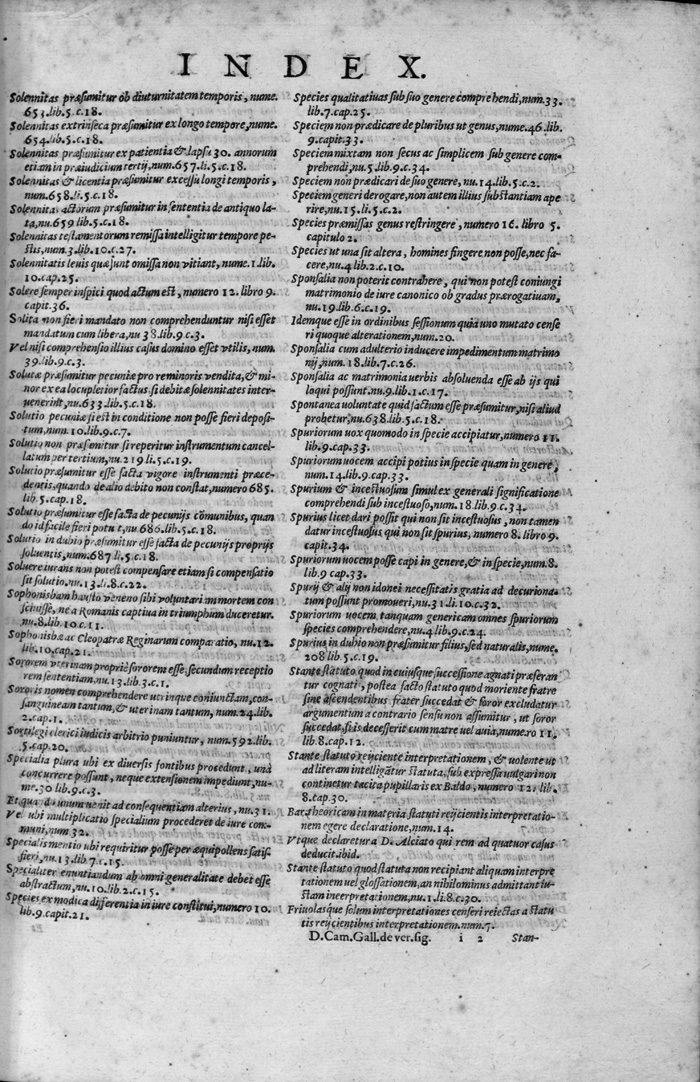 INDEX.
Solennitas præsumitur ob diuturnitatem temporis, nume.
653.lib.5.c.18.
Solennitas extrinseca præsumitur ex longo tempore, nume.
654.lib.5.c.18.
Solennitas præsumitur ex patientia & lapsu 30. annorum
etiam in præiudicium tertij, num.657.li.5.c.18.
Solennitas & licentia præsumitur excessu longi temporis,
num.658.li.5.c.18.
Solennitas actorum præsumitur in sententia de antiquo la-
ta, nu.659 lib.5.c.18.
Solennitas testamentorum remissa intelligitur tempore pe-
stis, num.3.lib.10.c.27.
Solennitatis leuis quæ sunt omissa non vitiant, nume.1.lib.
10.cap.25.
Solere semper inspici quod actum est, numero 12. libro 9.
capit.36.
Solita non fieri mandato non comprehenduntur nisi esset
mandatum cum libera, nu 38.lib.9.c.3.
Vel nisi comprehensio illius casus domino esset vtilis, num.
39.lib.9.c.3.
Solutæ præsumitur pecuniæ pro re minoris vendita, & mi-
nor ex ea locupletior factus si debitæ solennitates inter-
uenerint, nu.633.lib.5.c.18.
Solutio pecuniæ si est in conditione non posse fieri deposi-
tum, num.10.lib.9.c.7.
Solutio non præsumitur si reperitur instrumentum cancel-
latum per tertium, nu.219 li.5.c.19.
Solutio præsumitur esse facta vigore instrumenti præce-
dentis, quando de alio debito non constat, numero 685.
lib.5.cap.18.
Solutio præsumitur esse facta de pecunijs cōmunibus, quan
do id facile fieri potuit, nu 686.lib.5.c.18.
Solutio in dubio præsumitur esse facta de pecunijs proprijs
soluentis, num 687.li.5.c.18.
Soluere iurans non potest compensare etiam si compensatio
sit solutio. nu.13.li.8.c.22.
Sophonisbam hausto veneno sibi voluntariam mortem con
sciuisse, ne a Romanis captiua in triumphum duceretur.
nu.8.lib.10.c.11.
Sophonisbæ ac Cleopatræ Reginarum comparatio, nu.12.
lib.10.cap.21.
Sororem vterinam propriè sororem esse, secundum receptio
rem sententiam, nu.13.lib.3.c.1.
Sororis nomen comprehendere utrinque coniunctam, con-
sanguineam tantum, & uterinam tantum, num.24.lib.
2.cap.1.
Sortilegi clerici iudicis arbitrio puniuntur, num.592.lib.
5.cap.20.
Specialia plura ubi ex diuersis fontibus procedunt, unà
concurrere possunt, neque extensionem impediunt, nu-
me.30 lib.9.c.3.
Et quando unum uenit ad consequentiam alterius, nu.31.
Vel ubi multiplicatio specialium procederet de iure com-
muni, num 32.
Specialis mentio ubi requiritur posse per æquipollens satis
fieri, nu.13.lib.7.c.15.
Specialiter enuntiandum ab omni generalitate debet esse
abstractum, nu.10.lib.2.c.15.
Species ex modica differentia in iure constitui, numero 10.
lib.9.capit.21.
Species qualitatiuas sub suo genere comprehendi, num.33.
lib.7.cap.25.
Speciem non prædicare de pluribus ut genus, nume.46.lib.
9.capit.33.
Speciem mixtam non secus ac simplicem sub genere com-
prehendi, nu.5.lib.9.c.34.
Speciem non prædicari de suo genere, nu.14.lib.5.c.2.
Speciem generi derogare, non autem illius substantiam ape
rire, nu.15.li.5.c.2.
Species præmissas genus restringere, numero 16. libro 5.
capitulo 2.
Species ut una sit altera, homines fingere non posse, nec fa-
cere, nu.4 lib.2.c.10.
Sponsalia non poterit contrahere, qui non potest coniungi
matrimonio de iure canonico ob gradus prærogatiuam,
nu.19 lib.6.c.19.
Idemque esse in ordinibus sessionum quia uno mutato cense
ri quoque alterationem, num.20.
Sponsalia cum adulterio inducere impedimentum matrimo
nij, num.18.lib.7.c.26.
Sponsalia ac matrimonia uerbis absoluenda esse ab ijs qui
loqui possunt, nu.9.lib.1.c.17.
Spontanea uoluntate quid factum esse præsumitur, nisi aliud
probetur, nu.638.lib.5.c.18.
Spuriorum uox quomodo in specie accipiatur, numero 11.
lib.9.cap.33.
Spuriorum uocem accipi potius in specie quam in genere,
num.14.lib.9.cap.33.
Spurium & incestuosum simul ex generali significatione
comprehendi sub incestuoso, num.18.lib.9.c.34.
Spurius licet dari possit qui non sit incestuosus, non tamen
datur incestuosus qui non sit spurius, numero 8. libro 9.
capit.34.
Spuriorum uocem posse capi in genere, & in specie, num.8.
lib.9 cap.33.
Spurij & alij non idonei necessitatis gratia ad decuriona-
tum possunt promoueri, nu.31.li.10.c.32.
Spuriorum uocem tanquam genericam omnes spuriorum
species comprehendere, nu.4 lib.9.c.24.
Spurius in dubio non præsumitur filius, sed naturalis, nume.
208 lib.5.c.19.
Stante statuto quod in cuiusque successione agnati præferan
tur cognati, postea facto statuto quod moriente fratre
sine ascendentibus frater succedat & soror excludatur
argumentum a contrario sensu non assumitur, ut soror
succedat, si is decesserit cum matre uel auia, numero 11.
lib.8.cap.12.
Stante statuto reijciente interpretationem, & uolente ut
ad literam intelligātur statuta, sub expressa uulgari non
continetur tacita pupillaris ex Baldo, numero 12. lib.
8.cap.30.
Bar. theoricam in materia statuti reijcientis interpretatio-
nem egere declaratione, num.14.
Vtque declaretur D. Alciato qui rem ad quatuor casus
deducit. ibid.
Stante statuto quod statuta non recipiant aliquam interpre
tationem uel glossationem, an nihilominus admittant iu-
stam inerpretationem, nu.1.li.8.c.30.
Friuolasque solum interpretationes censeri reiectas a statu
tis reijcientibus interpretationem.num.7.
D.Cam.Gall.de ver.sig. i 2 Stan-